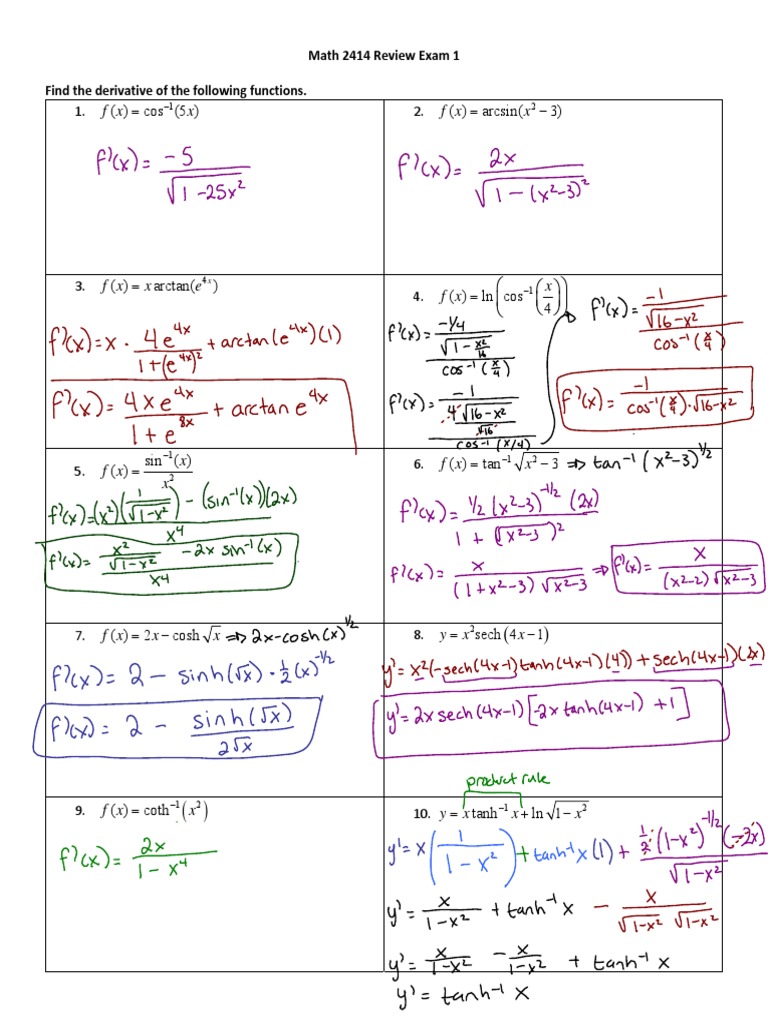 Math 2414 Review Exam 1
Find the derivative of the following functions.
1. f(x) = cos⁻¹(5x)
f'(x) = -5 / √(1-25x²)
2. f(x) = arcsin(x² − 3)
f'(x) = 2x / √(1-(x²-3)²)
3. f(x) = x arctan(e⁴ˣ)
f'(x) = x · 4e⁴ˣ / (1+(e⁴ˣ)²) + arctan(e⁴ˣ)(1)
f'(x) = 4xe⁴ˣ / (1+e⁸ˣ) + arctan e⁴ˣ
4. f(x) = ln(cos⁻¹(x/4))
f'(x) = (-1/4 / √(1-x²/16)) / cos⁻¹(x/4)
f'(x) = (-1 / (4√(16-x²)/√16)) / cos⁻¹(x/4)
f'(x) = (-1 / √(16-x²)) / cos⁻¹(x/4)
f'(x) = -1 / (cos⁻¹(x/4)·√(16-x²))
5. f(x) = sin⁻¹(x) / x²
f'(x) = ((x²)(1/√(1-x²)) - (sin⁻¹(x))(2x)) / x⁴
f'(x) = (x²/√(1-x²) - 2x sin⁻¹(x)) / x⁴
6. f(x) = tan⁻¹√(x² − 3) ⇒ tan⁻¹(x²-3)^1/2
f'(x) = 1/2(x²-3)^-1/2 (2x) / (1 + (√(x²-3))²)
f'(x) = x / ((1+x²-3)√(x²-3)) ⇒ f'(x) = x / ((x²-2)√(x²-3))
7. f(x) = 2x − cosh √x ⇒ 2x-cosh(x)^1/2
f'(x) = 2 - sinh(√x) · 1/2(x)^-1/2
f'(x) = 2 - sinh(√x) / 2√x
8. y = x² sech(4x − 1)
y' = x²(-sech(4x-1)tanh(4x-1)(4)) + sech(4x-1)(2x)
y' = 2x sech(4x-1)[-2x tanh(4x-1) + 1]
9. f(x) = coth⁻¹(x²)
f'(x) = 2x / (1-x⁴)
product rule
10. y = x tanh⁻¹ x + ln √(1 − x²)
y' = x(1/(1-x²)) + tanh⁻¹x(1) + 1/2(1-x²)^-1/2 (-2x) / √(1-x²)
y' = x/(1-x²) + tanh⁻¹ x - x / (√(1-x²) √(1-x²))
y' = x/(1-x²) - x/(1-x²) + tanh⁻¹ x
y' = tanh⁻¹ x